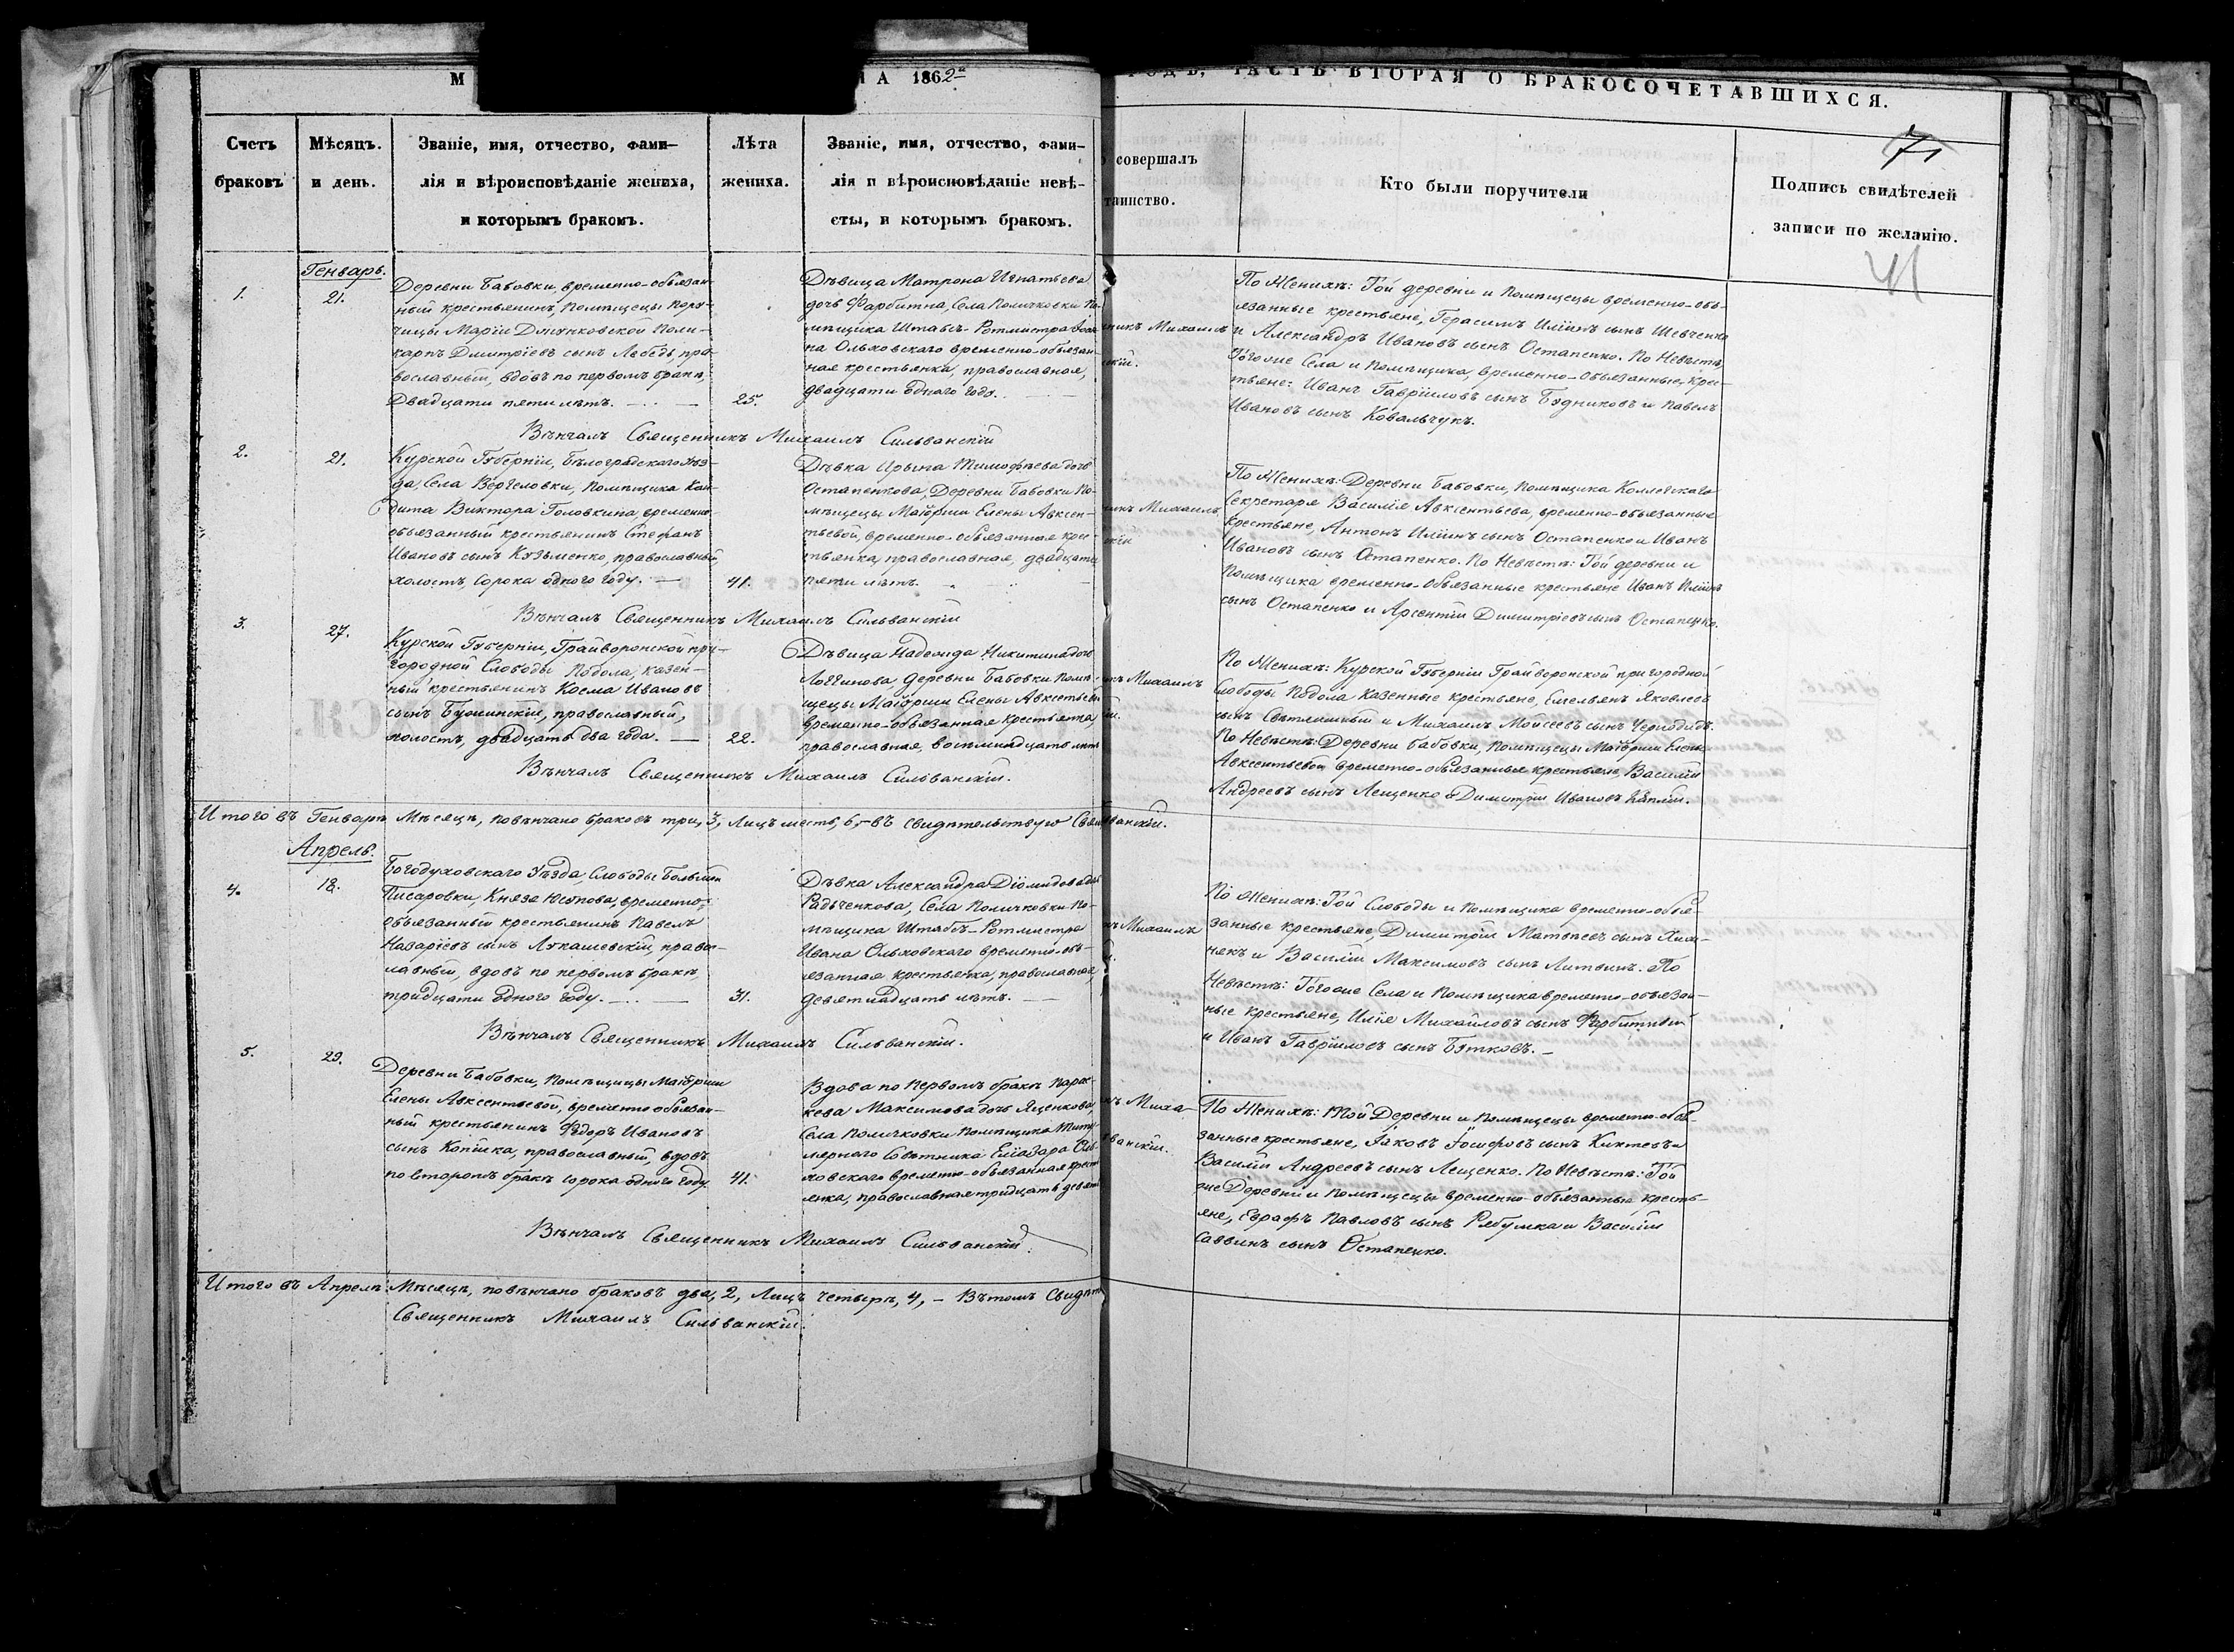 М
НА 1862
РОДЪ, ЧАСТЬ ВТОРАЯ О БРАКОСОЧЕТАВШИХСЯ.
71
41
Счетъ
браковъ
Мѣсяцъ.
и день.
Званіе, имя, отчество, фами-
лія и вѣроисповѣданіе жениха,
и которымъ бракомъ.
Лѣта
жениха.
Званіе, имя, отчество, фами-
лія и вѣроисповѣданіе невѣ-
сты, и которымъ бракомъ.
совершалъ
таинство.
Кто были поручители
Подпись свидѣтелей
записи по желанію.
Генварь.
1.
21.
Деревни Бабовки, временно-обязан-
ный крестьянинъ, Помѣщецы Пору-
чицы Маріи Джунковской Поли-
карпъ Димитріевъ сынъ Лебедь, пра-
вославный, вдовъ по первомъ бракѣ,
Двадцати пяти лѣтъ.
25.
Дѣвица Матрона Игнатьева
дочь Фарбитна, Села Поличковки По-
мѣщика Штабъ-Ротмистра Іоан-
на Ольховскаго временно-обязан-
ная крестьянка, православная,
двадцати одного года.
никъ Михаилъ
скій.
По Женихѣ: Той деревни и Помѣщецы временно-обя-
язанные крестьяне, Герасимъ Иліинъ сынъ Шевченко
и Александръ Ивановъ сынъ Остапенко. По Невѣстѣ,
Тогоже Села и Помѣщика, временно-обязанные, крес-
тьяне: Иванъ Гавріиловъ сынъ Будниковъ и Павелъ
Ивановъ сынъ Ковальчукъ.
Вѣнчалъ Священникъ Михаилъ Сильванскій
2.
21.
Курской Губерніи, Бѣлоградскаго Уѣз-
да, Села Вергеловки, Помѣщика Кан-
дита Виктора Головкина, временно-
обязанный крестьянинъ Стефанъ
Ивановъ сынъ Кузьменко, православный,
холостъ, сорока одного году.
41.
Дѣвка Ирына Тимофѣева дочь
Остапенкова, Деревни Бабовки По-
мѣщецы Маіорши Елены Авксен-
тьевой, временно-обязанная крес-
тьянка, православная, двадцати
пяти лѣтъ.
никъ Михаилъ
скій
По Женихѣ: Деревни Бабовки, Помѣщика Коллежскаго
Секретаря Василія Авксентьева, временно-обязанные
Крестьяне, Антонъ Иліинъ сынъ Остапенко и Иванъ
Ивановъ сынъ Остапенко. По Невѣстѣ: Той деревни и
Помѣщика временно-обязанные крестьяне Иванъ Иліинъ
сынъ Остапенко и Арсентій Димитріевъ сынъ Остапенко.
Вѣнчалъ Священникъ Михаилъ Сильванскій
3.
27.
Курской Губерніи, Грайворонской при-
городной Слободы Подола, казен-
ный крестьянинъ Косма Ивановъ
сынъ православный,
холостъ, двадцать два года.
22.
Дѣвица Надежда Никитина дочь
Логгинова, деревни Бабовки Помѣ-
щецы Маіорши Елены Авксентьевой
временно-обязанная крестьянка,
православная, восемнадцать лѣтъ
никъ Михаилъ
й.
По Женихѣ: Курской Губерніи Грайворонской пригородной
Слободы Подола казенные крестьяне, Емельянъ Яковлевъ
сынъ и Михаилъ Моисеевъ сынъ Чернодѣдъ.
По Невѣстѣ: Деревни Бабовки, Помѣщецы Маіорши Елены
Авксентьевой временно-обязанные крестьяне, Василій
Андреевъ сынъ Лещенко и Димитрій Ивановъ
Вѣнчалъ Священникъ Михаилъ Сильванскій.
Итого въ Генварѣ Мѣсяцѣ, повѣнчано браковъ три, 3, Лицъ шесть, 6,-въ свидѣтельствую Свя ванскій.
Апрель.
4.
18.
Богодуховскаго Уѣзда, Слободы Большой
Писаровки, Князя Юсупова, временно-
обязанный крестьянинъ Павелъ
Назаріевъ сынъ Лукашевскій, право-
лавный, вдовъ по первомъ бракѣ,
тридцати одного году.
31.
Дѣвка Александра Діомидова дочь
Радьченкова, Села Поличковки По-
мѣщика Штабъ-Ротмистра
Ивана Ольховскаго временно-об-
язанная крестьянка, православная,
девятнадцать лѣтъ.
къ Михаилъ
По Женихѣ: Той Слободы и Помѣщика временно-обя-
занные крестьяне, Димитрій Матвѣевъ сынъ Хиж-
някъ и Василій Максимовъ сынъ Литвинъ. По
Невѣстѣ: Тогоже Села и Помѣщика временно-обязан-
ные крестьяне, Илія Михаиловъ сынъ Фарбитный
и Иванъ Гавріиловъ сынъ Бутковъ.
Вѣнчалъ Священникъ Михаилъ Сильванскій.
5.
29.
Деревни Бабовки, Помѣщицы Маіорши
Елены Авксентьевой, временно обязан-
ный крестьянинъ Ѳедоръ Ивановъ
сынъ Копійка, православный, вдовъ
по второмъ бракѣ сорока одного году.
41.
Вдова по первомъ бракѣ Парас-
кева Максимова дочь Яценкова,
Села Поличковки Помѣщика Титу-
лярнаго Совѣтника Еліазара Оль-
ховскаго временно-обязанная крест
янка, православная тридцать девять
къ Миха
ванскій.
По Женихѣ: Той Деревни и Помѣщецы временно-обя-
занные крестьяне, Іаковъ Іосифовъ сынъ Киктевъ и
Василій Андреевъ сынъ Лещенко. По Невѣстѣ: Той
же Деревни и Помѣщецы временно-обязанные кресть-
яне, Еврафъ Павловъ сынъ Рябушка и Василій
Саввинъ сынъ Остапенко.
Вѣнчалъ Священникъ Михаилъ Сильванскій.
Итого въ Апрелѣ Мѣсяцѣ, повѣнчано браковъ два, 2, Лицъ четырѣ, 4, - Въ томъ Свидѣт
Священникъ Михаилъ Сильванскій.